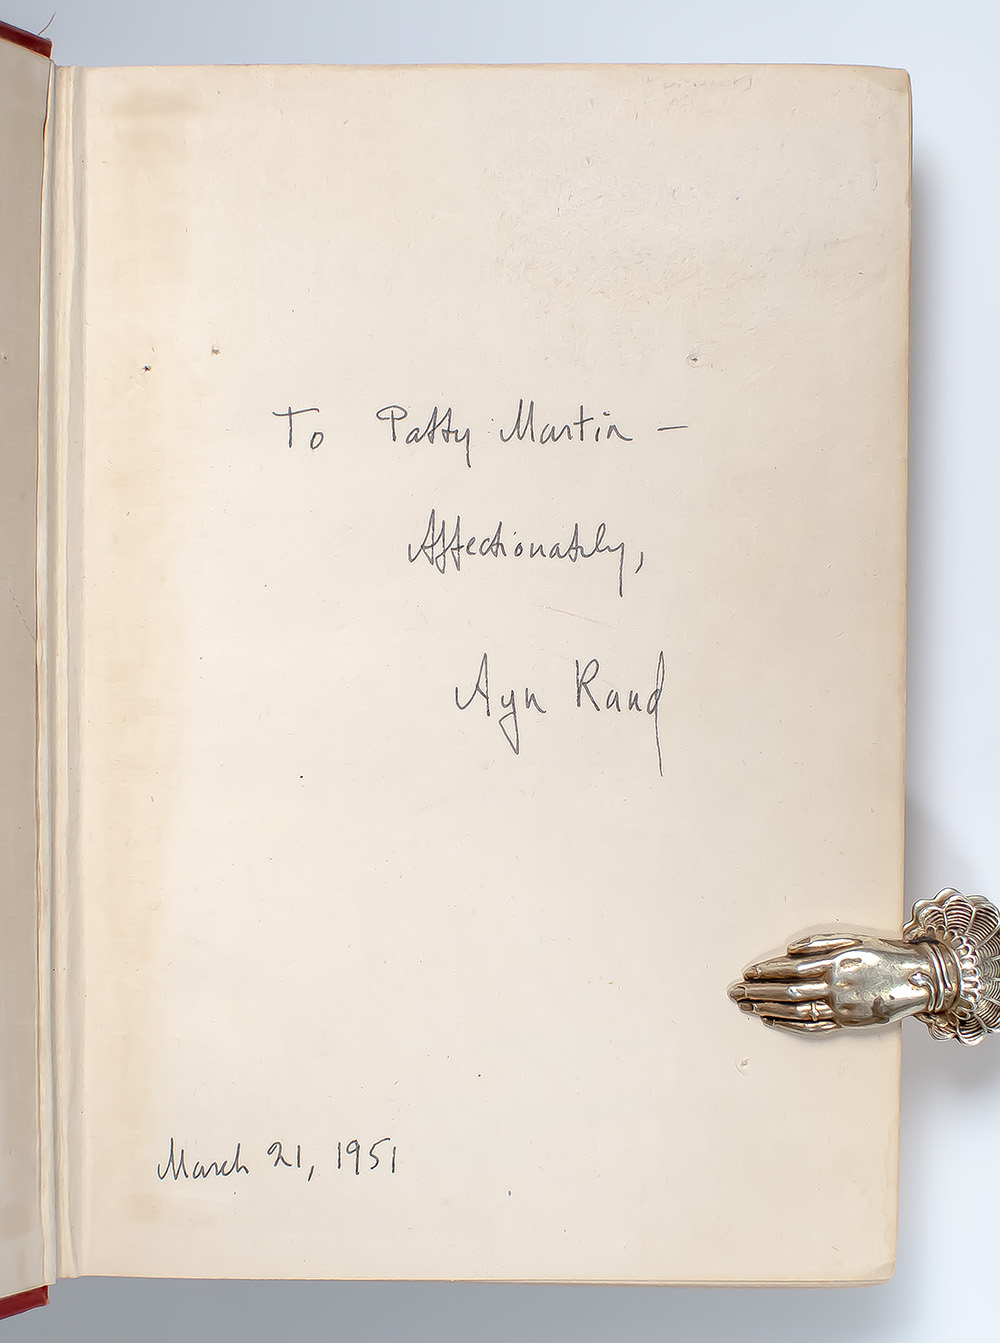 To Patty Martin —
Affectionately,
Ayn Rand
March 21, 1951